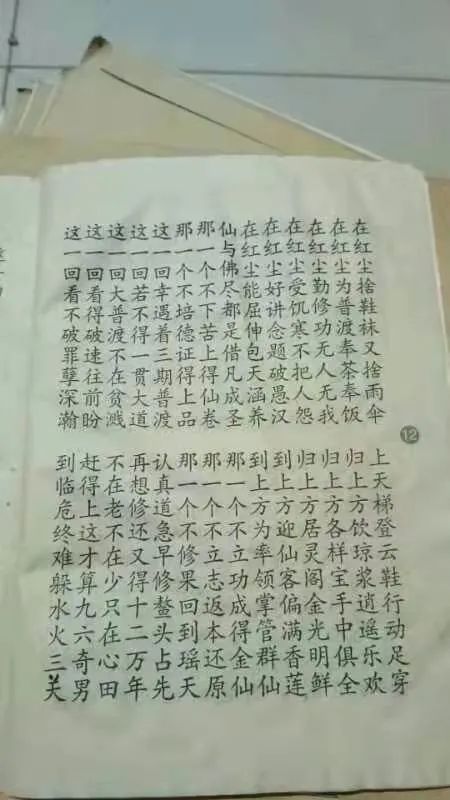 在红尘捨鞋袜又捨雨伞
上天梯登云鞋行动足穿
在红尘为普渡奉茶奉饭
归上方饮琼浆逍遥乐欢
在红尘勤修功无人无我
归上方各样宝手中俱全
在红尘受饥寒不把人怨
归上方居灵阁金光明鲜
在红尘好讲念题破愚汉
到上方迎仙客偏满香莲
在红尘能屈伸包天涵养
到上方为率领掌管群仙
仙与佛尽都是借凡成圣
那一个不立功成得金仙
那一个不下苦上得仙卷
那一个不立志返本还原
那一个不培德证得上品
那一个不修果回到瑶天
这一回幸遇着三期普渡
认真道急早修鳌头占先
这一回若不得一贯大道
再想修还又得十二万年
这一回大普渡不在贫溅
不在老不在少只在心田
这一回看得破速往前盼
赶得上这才算九六奇男
这一回看不破罪孽深瀚
到临危终难躲水火三关
12